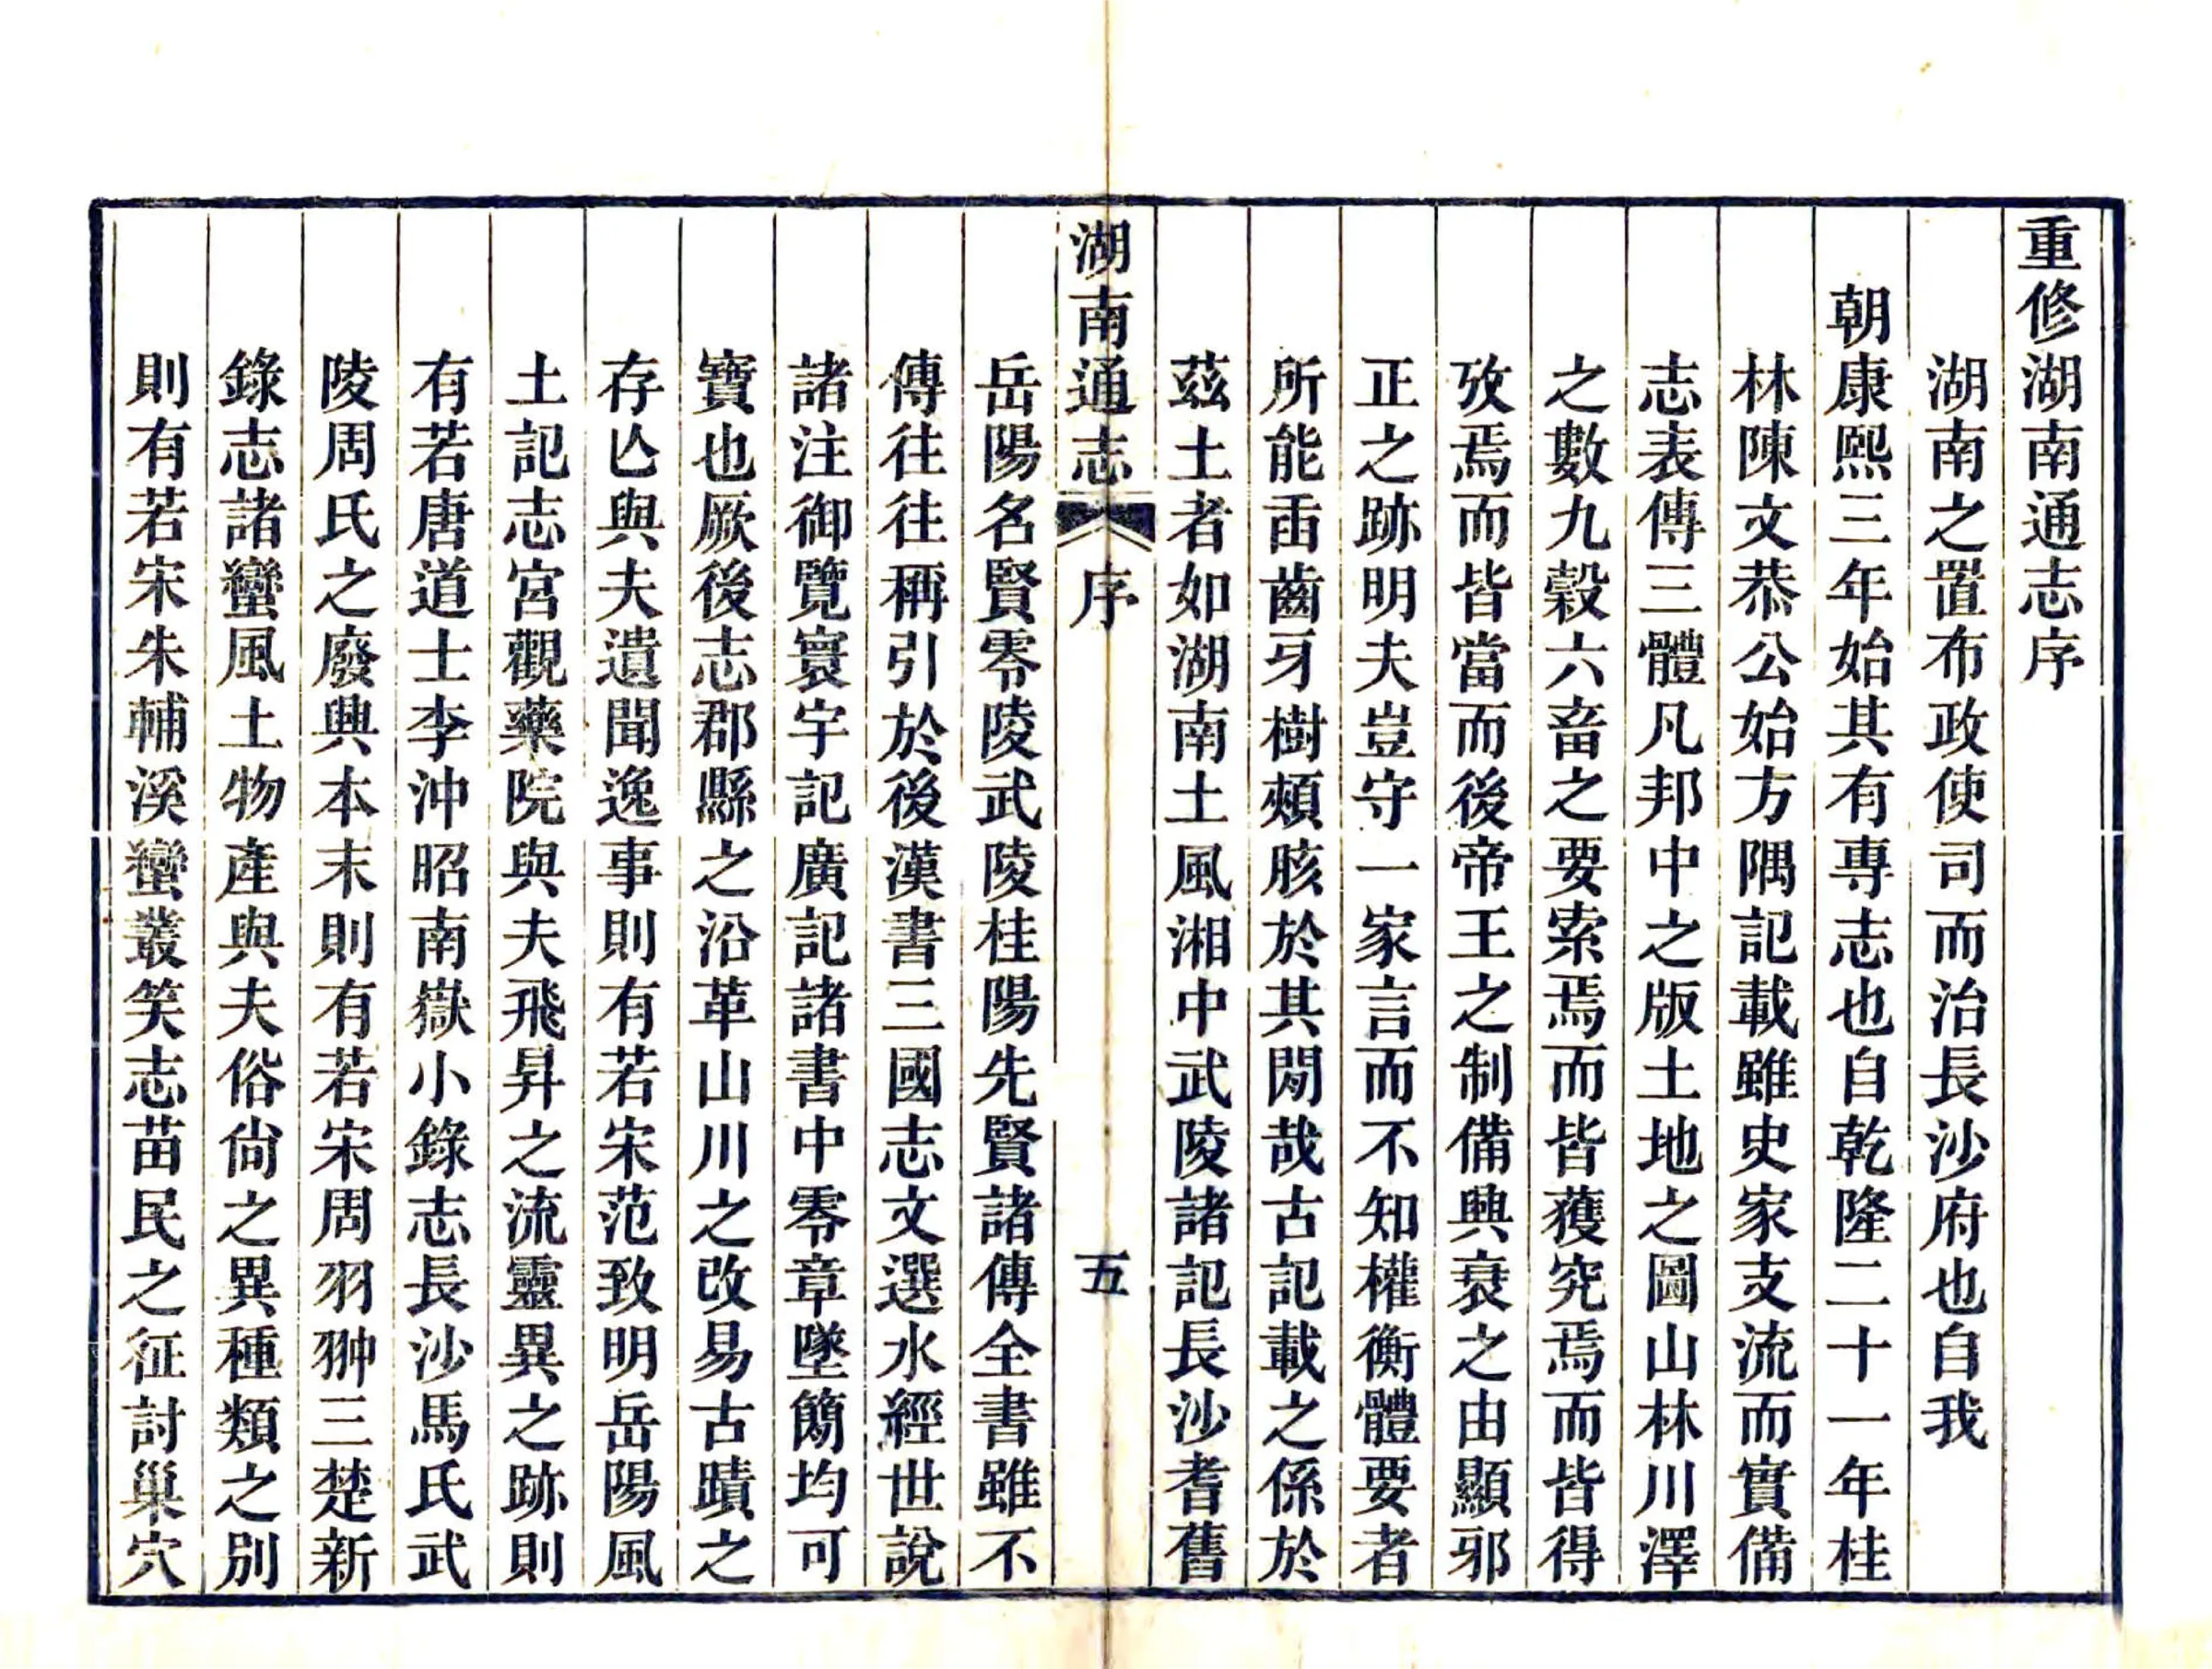 重修湖南通志序
湖南之置布政使司而治長沙府也自我
朝康熙三年始其有專志也自乾隆二十一年桂
林陳文恭公始方隅記載雖史家支流而實備
志表傳三體凡邦中之版土地之圖山林川澤
之數九穀六畜之要索焉而皆獲究焉而皆得
攷焉而皆當而後帝王之制備興衰之由顯邪
正之跡明夫豈守一家言而不知權衡體要者
所能臿齒牙樹頰胲於其閒哉古記載之係於
茲土者如湖南土風湘中武陵諸記長沙耆舊
湖南通志 序 五
岳陽名賢零陵武陵桂陽先賢諸傳全書雖不
傳往往稱引於後漢書三國志文選水經世說
諸注御覽寰宇記廣記諸書中零章墜簡均可
寶也厥後志郡縣之沿革山川之改易古蹟之
存亾與夫遺聞逸事則有若宋范致明岳陽風
土記志宮觀藥院與夫飛昇之流靈異之跡則
有若唐道士李沖昭南嶽小錄志長沙馬氏武
陵周氏之廢興本末則有若宋周羽翀三楚新
錄志諸蠻風土物產與夫俗尚之異種類之別
則有若宋朱輔溪蠻叢笑志苗民之征討巢穴